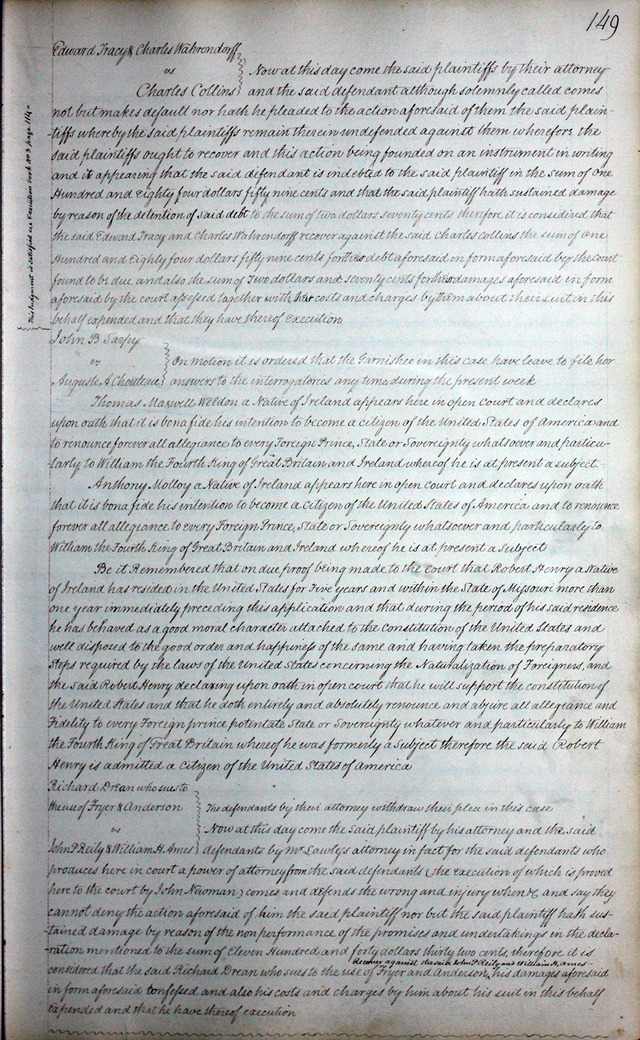 149
Edward Tracy & Charles Wahrendorff
vs
Charles Collins
Now at this day come the said plaintiffs by their attorney
and the said defendant although solemnly called comes
not but makes default nor hath he pleaded to the action aforesaid of them the said plain-
tiffs whereby the said plaintiffs remain therein undefended against them wherefore the
said plaintiffs ought to recover and this action being founded on an instrument in writing
and it appearing that the said defendant is indebted to the said plaintiff in the sum of One
Hundred and Eighty four dollars fifty nine cents and that the said plaintiff hath sustained damage
by reason of the detention of said debt to the sum of two dollars seventy cents therefore it is considered that
the said Edward Tracy and Charles Wahrendorff recover against the said Charles Collins the sum of One
Hundred and Eighty four dollars fifty nine cents for their debt aforesaid in form aforesaid by the Court
found to be due and also the sum of Two dollars and seventy cents for their damages aforesaid in form
aforesaid by the court assessed together with their costs and charges by them about their suit in this
behalf expended and that they have thereof Execution
This Judgment is satisfied see Execution book No 3 page 114
John B Sarpy
vs
Auguste A Chouteau
On motion it is ordered that the Garnishee in this case have leave to file her
answers to the interrogatores any time during the present week
Thomas Maxwell Weldon a Native of Ireland appears here in open Court and declares
upon oath that it is bona fide his intention to become a citizen of the United States of America and
to renounce forever all allegiance to every Foreign Prince, State or Sovereignty whatsoever and particu-
larly to William the Fourth King of Great Britain and Ireland whereof he is at present a subject.
Anthony Molloy a Native of Ireland appears here in open Court and declares upon oath
that it is bona fide his intention to become a Citizen of the United States of America and to renounce
forever all allegance to every Foreign Prince, State or Sovereignty whatsoever and particularly to
William the Fourth King of Great Britain and Ireland whereof he is at present a Subject
Be it Remembered that on due proof being made to the court that Robert Henry a Native
of Ireland has resided in the United States for Five years and within the State of Missouri more than
one year immediately preceding this application and that during the period of his said residence
he has behaved as a good moral character attached to the Constitution of the United States and
well disposed to the good order and happiness of the same and having taken the preparatory
steps required by the laws of the United States concerning the Naturalization of Foreigners, and
the said Robert Henry declaring upon oath in open court that he will support the constitution of
the United States and that he doth entirely and absolutely renounce and abjure all allegiance and
Fidelity to every Foreign prince potentate State or Sovereignty whatever and particularly to William
the Fourth King of Great Britain whereof he was formerly a Subject therefore the said Robert
Henry is admitted a Citizen of the United States of America
Richard Drean who sues to
the use of Fryer & Anderson
vs
John P Reily & William H. Ames
The defendants by their attorney withdraw their plea in this case
Now at this day come the Said plaintiff by his attorney and the said
defendants by Mr Lawly's attorney in fact for the said defendants who
produces here in court a power of attorney from the said defendants (the execution of which is proved
here to the court by John Newman) comes and defends the wrong and injury when &c and say they
cannot deny the action aforesaid of him the said plaintiff nor but the said plaintiff hath sus-
tained damage by reason of the non performance of the promises and undertakings in the decla-
ration mentioned to the sum of Eleven Hundred and forty dollars thirty two cents, therefore it is
recover against the said John P Reily and William H. Ames
considered that the said Richard Drean who sues to the use of Fryer and Anderson, his damages aforesaid
in form aforesaid confessed and also his costs and charges by him about his suit in this behalf
expended and that he have thereof execution